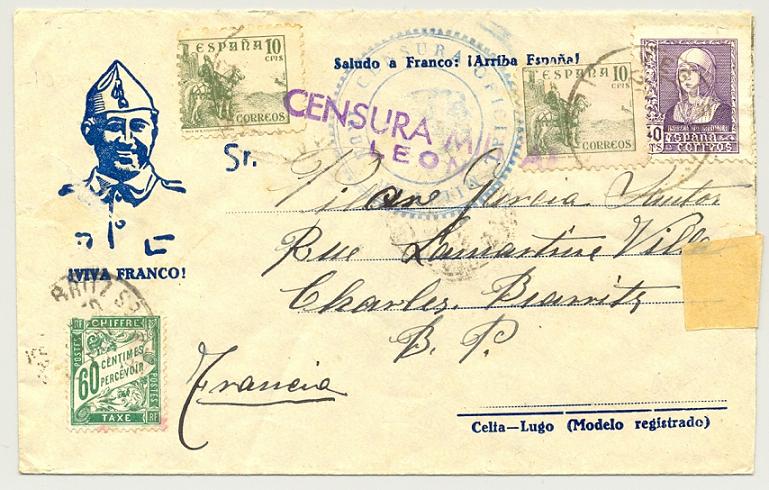 ESPAÑA 10
CTMS
CORREOS
Saludo a Franco: ¡Arriba España!
ESPAÑA 10
CTMS
CORREOS
40
CTS
ESPAÑA
CORREOS
CENSURA OFICIAL
CENSURA MILITAR
LEON
Sr.
Pilar Garcia
Rue Lamartine Villa
Charles, Biarritz
B. P.
Francia
¡VIVA FRANCO!
BIARRITZ
CHIFFRE
POSTES
60 CENTIMES
A
PERCEVOIR
POSTES
TAXE
RF
Celta—Lugo (Modelo registrado)